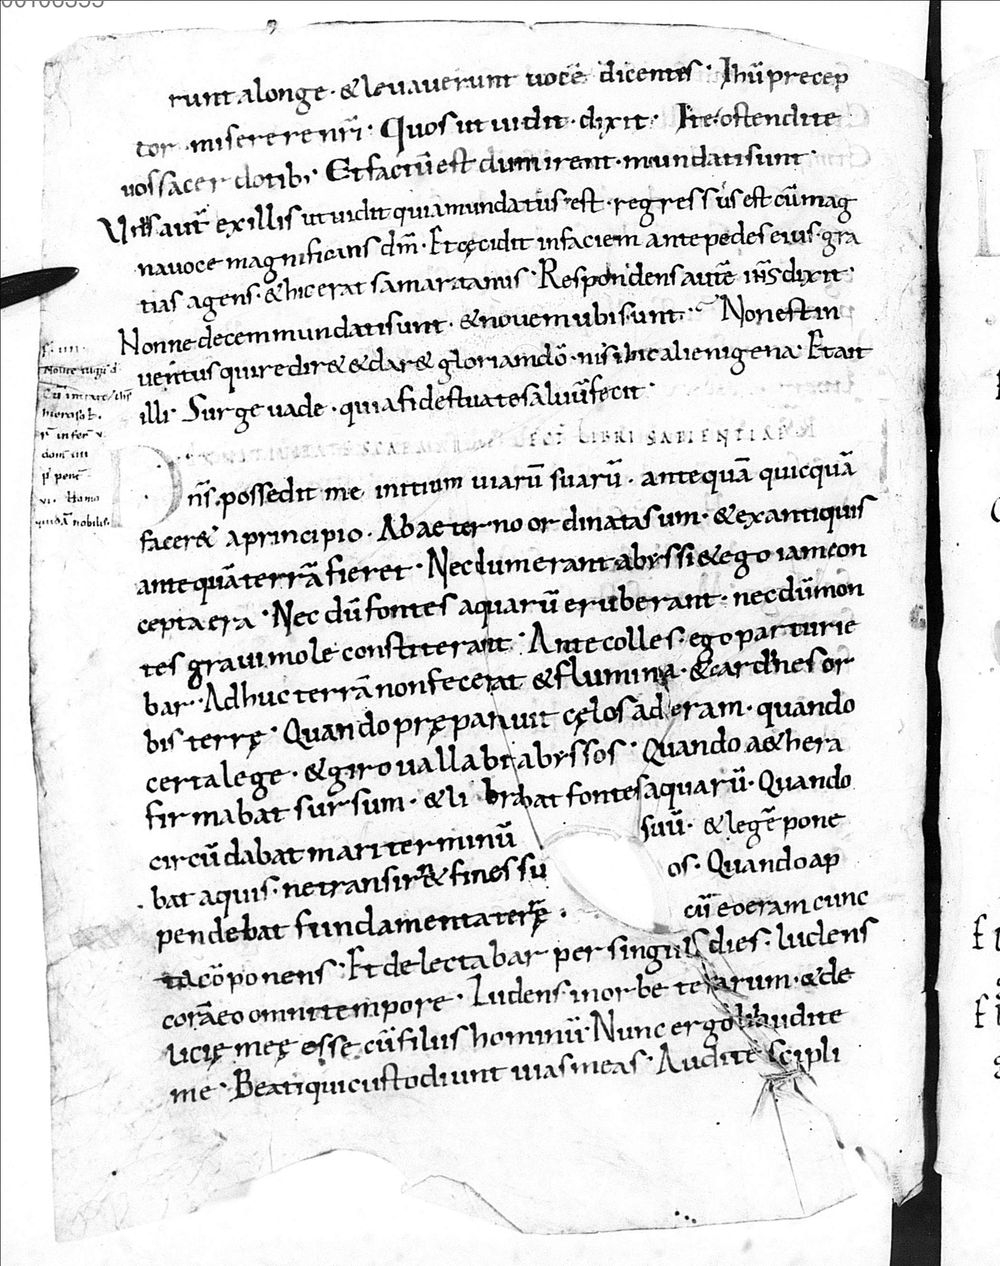 runt alonge · & levaverunt vocē dicentes · Ihū precep
tor miserere nr̄i · Quos ut vidit · dixit · Ite ostendite
vos sacerdotib; Et factū est dum irent · mundati sunt ·
Unus aut̄ ex illis ut vidit quia mundatus est · regressus est cū mag
na voce magnificans dm̄ · Et cęcidit in faciem ante pedes eius · gra
tias agens · & hic erat samaritanus · Respondens autē ih̄s dixit ·
Nonne decem mundati sunt · & novem ubi sunt · Non est in
ventus qui redir& & dar& gloriam dō · nisi hic alienigena · Et ait
illi · Surge vade · quia fides tua te salvū fecit ·
LECT LIBRI SAPIENTIAE
Dn̄s possedit me initium viarū suarū · antequā quicquā
facer& a principio · Ab aeterno ordinata sum · & ex antiquis
antequā terrā fieret · Necdum erant abyssi & ego iam con
cepta era · Nec dū fontes aquarū eruberant · necdū mon
tes gravi mole constiterant · Ante colles · ego parturie
bar · Adhuc terrā non fecerat & flumina · & cardines or
bis terrę · Quando pręparavit cęlos aderam · quando
certa lege · & giro vallabt abyssos · Quando a&hera
firmabat sursum · & librabat fontes aquarū · Quando
circūdabat mari terminū suū · & legē pone
bat aquis · ne transir& fines suos · Quando ap
pendebat fundamenta terrę · cū eo eram cunc
ta cōponens · Et delectabar per singulis dies · ludens
corā eo omni tempore · Ludens in orbe terrarum · & de
licię meę esse cū filiis hominū · Nunc ergo filii audite
me · Beati qui custodiunt vias meas · Audite scipli
Cū intrar& ih̄s
hierosol.
dom iii
vi · Homo
quidā nobilis